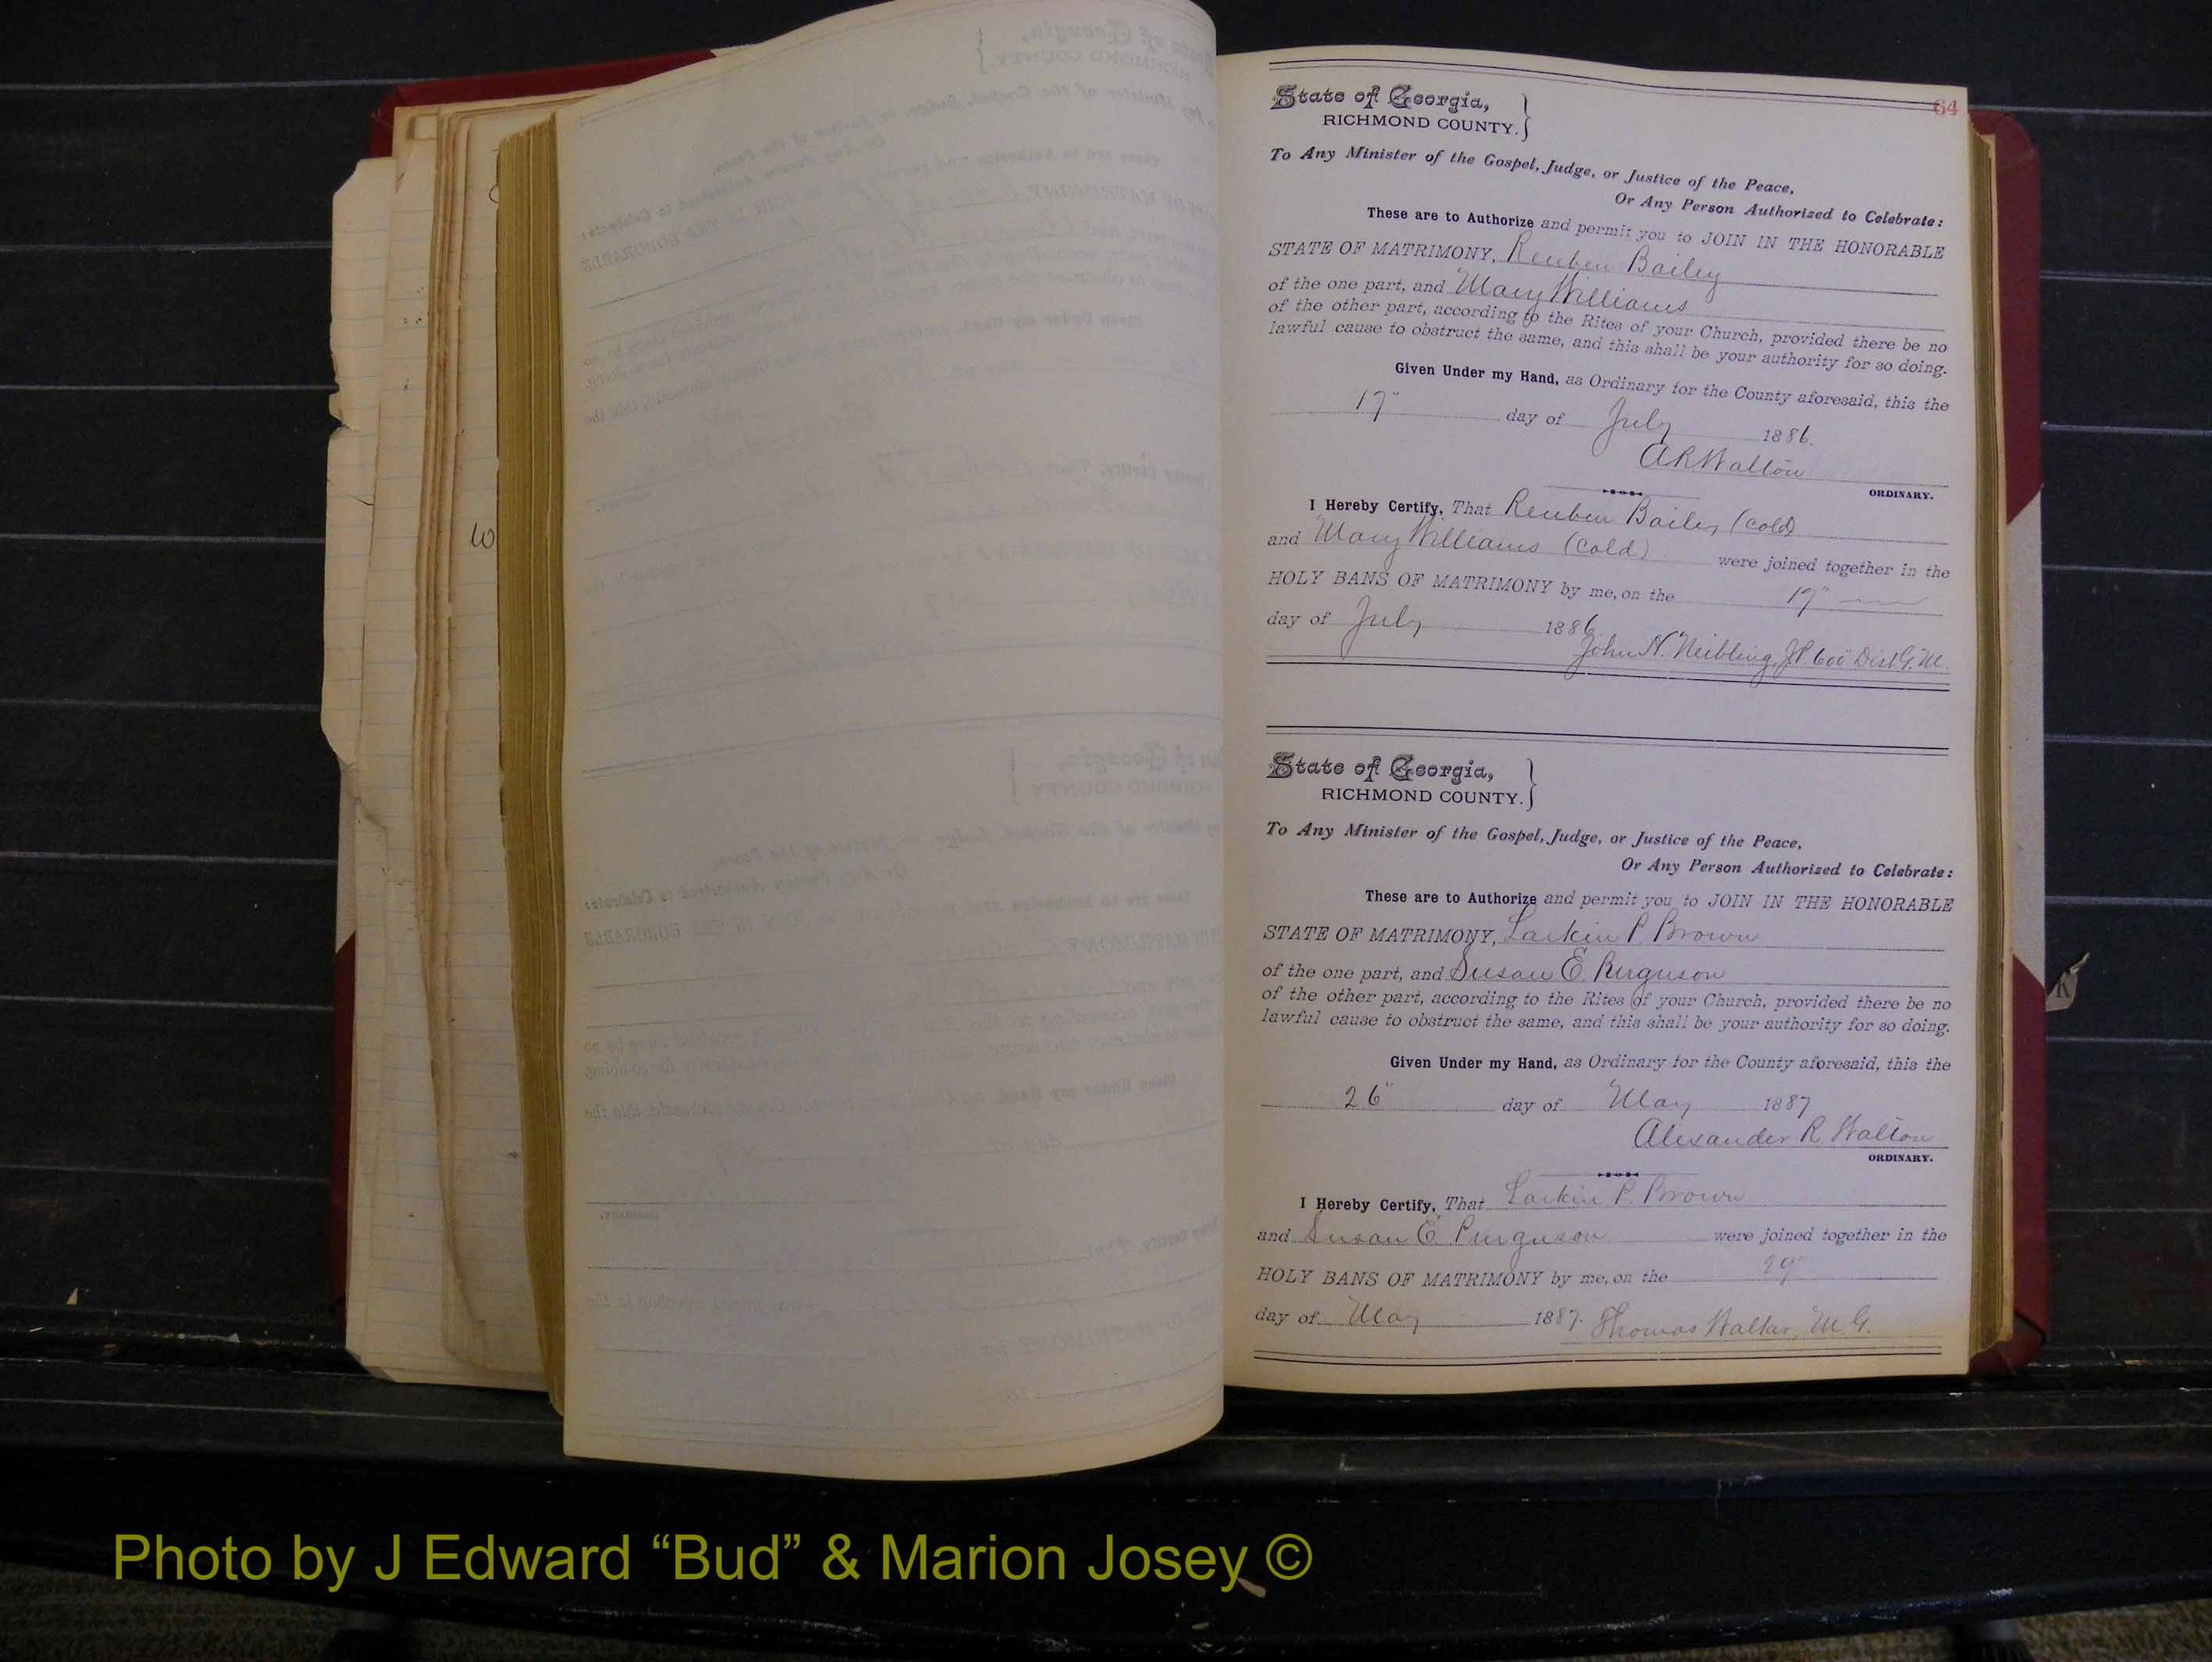 64
State of Georgia,
RICHMOND COUNTY.
To Any Minister of the Gospel, Judge, or Justice of the Peace,
Or Any Person Authorized to Celebrate:
These are to Authorize and permit you to JOIN IN THE HONORABLE
STATE OF MATRIMONY, Reuben Bailey
of the one part, and Mary Williams
of the other part, according to the Rites of your Church, provided there be no
lawful cause to obstruct the same, and this shall be your authority for so doing.
Given Under my Hand, as Ordinary for the County aforesaid, this the
17" day of July 1886.
A R Walton
ORDINARY.
I Hereby Certify, That Reuben Bailey (Cold)
and Mary Williams (Cold) were joined together in the
HOLY BANS OF MATRIMONY by me, on the 17"
day of July 1886
John N. Neibling, J.P. 600" Dist G. M.
State of Georgia,
RICHMOND COUNTY.
To Any Minister of the Gospel, Judge, or Justice of the Peace,
Or Any Person Authorized to Celebrate:
These are to Authorize and permit you to JOIN IN THE HONORABLE
STATE OF MATRIMONY, Larkin P. Brown
of the one part, and Susan E. Purguson
of the other part, according to the Rites of your Church, provided there be no
lawful cause to obstruct the same, and this shall be your authority for so doing.
Given Under my Hand, as Ordinary for the County aforesaid, this the
26" day of May 1887
Alexander R. Walton
ORDINARY.
I Hereby Certify, That Larkin P. Brown
and Susan E. Purguson were joined together in the
HOLY BANS OF MATRIMONY by me, on the 29"
day of May 1887.
Thomas Walker, M. G.
Photo by J Edward “Bud” & Marion Josey ©